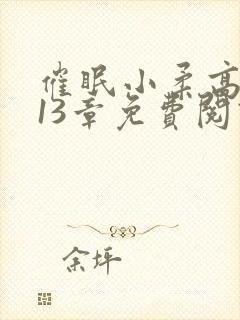 催眠小柔高
13章免費閱
余坪